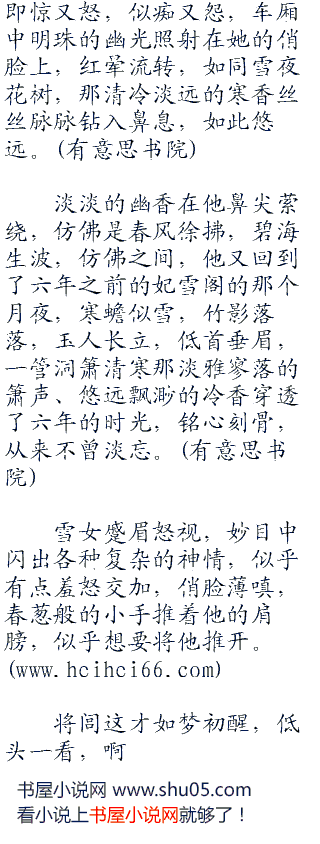 即惊又怒，似痴又怨，车厢
中明珠的幽光照射在她的俏
脸上，红晕流转，如同雪夜
花树，那清冷淡远的寒香丝
丝脉脉钻入鼻息，如此悠
远。(有意思书院)
淡淡的幽香在他鼻尖萦
绕，仿佛是春风徐拂，碧海
生波，仿佛之间，他又回到
了六年之前的妃雪阁的那个
月夜，寒蟾似雪，竹影落
落，玉人长立，低首垂眉，
一管洞箫清寒那淡雅寥落的
箫声、悠远飘渺的冷香穿透
了六年的时光，铭心刻骨，
从来不曾淡忘。(有意思书
院)
雪女蹙眉怒视，妙目中
闪出各种复杂的神情，似乎
有点羞怒交加，俏脸薄嗔，
春葱般的小手推着他的肩
膀，似乎想要将他推开。
(www.hcihci66.com)
将闾这才如梦初醒，低
头一看，啊
书屋小说网 www.shu05.com
看小说上书屋小说网就够了！